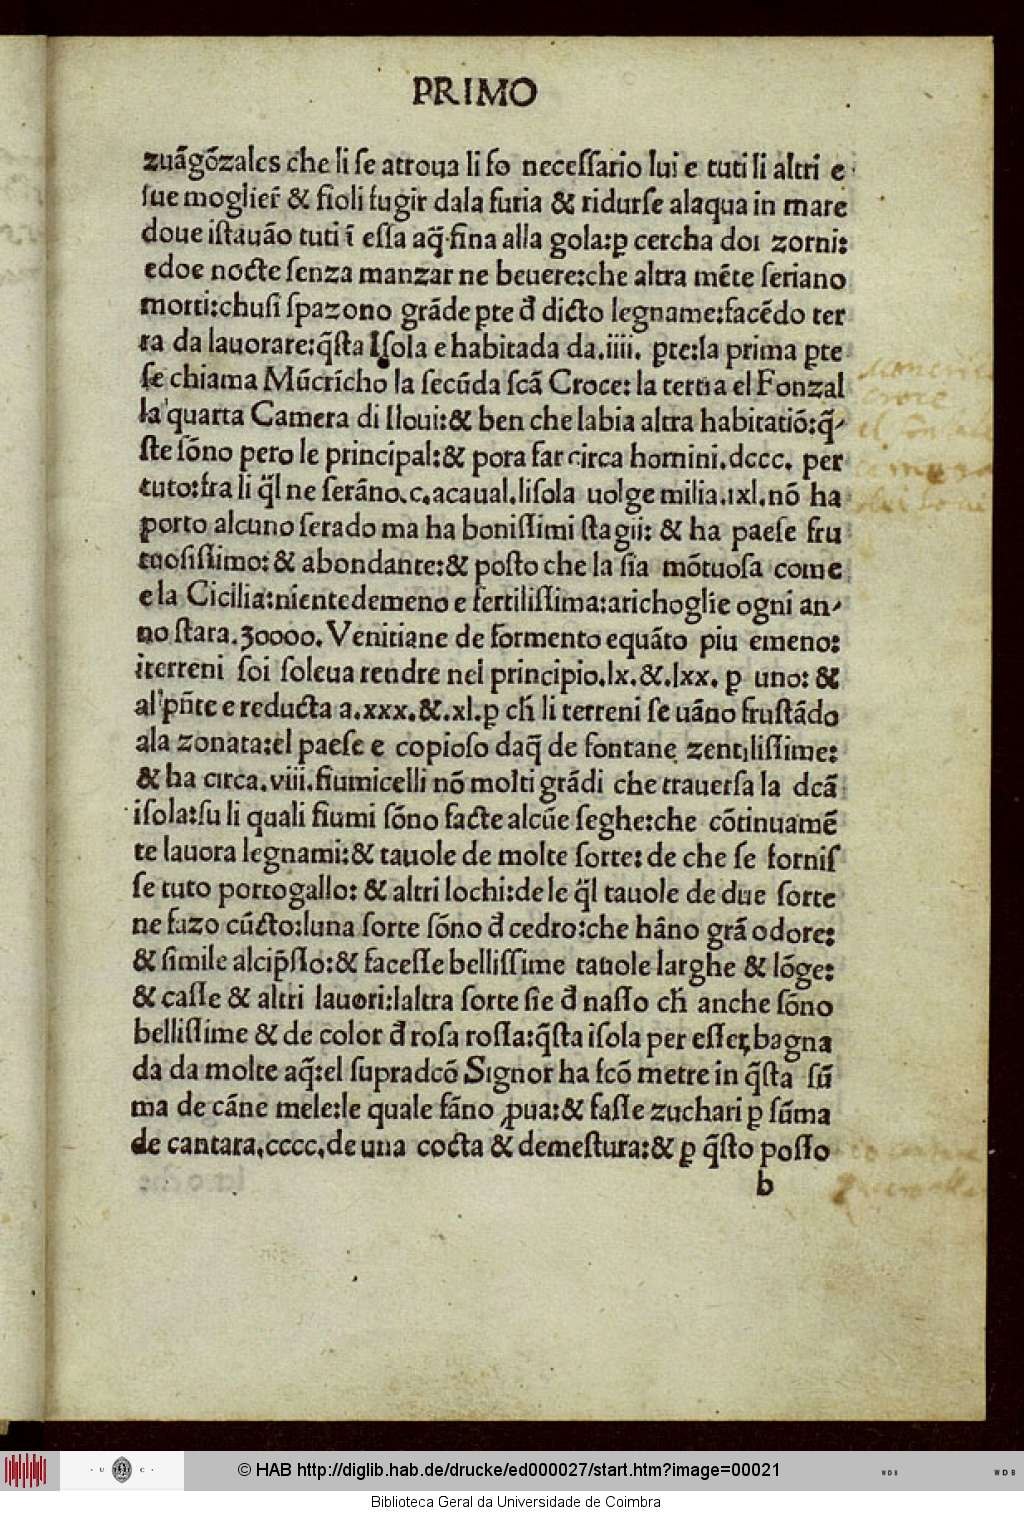 PRIMO
zuãgõzales che li se atroua li fo neceſſario lui e tuti li altri e
ſue moglier̃ & fioli fugir dala furia & ridurſe alaqua in mare
doue iſtauão tuti ĩ eſſa aq̃.fina alla gola:ꝑ cercha doi zorni:
edoe nocte ſenza manzar ne beuere:che altra mẽte ſeriano
morti:chuſi ſpazono grãde ꝑte đ dicto legname:facẽdo ter
ra da lauorare:q̃ſta Iſola e habitada da.iiii. ꝑte:la prima ꝑte
ſe chiama Mũcrĩcho la ſecũda ſcã Croce: la tertia el Fonzal
la quarta Camera di lloui:& ben che labia altra habitatiõ:q̃-
ſte ſõno pero le principal:& pora far circa homini.dccc. per
tuto:fra li q̃l ne ſerãno.c.acaual.liſola uolge milia.ixl.nõ ha
porto alcuno ſerado ma ha boniſſimi ſtagii: & ha paeſe fru
tuoſiſſimo: & abondante:& poſto che la ſia mõtuoſa come
e la Cicilia:nientedemeno e fertiliſſima:arichoglie ogni an-
no ſtara.30000. Venitiane de formento equãto piu emeno:
iterreni ſoi ſoleua rendre nel principio.lx.&.lxx. ꝑ uno: &
al pñte e reducta a.xxx.&.xl.ꝑ ch̃ li terreni ſe uãno fruſtãdo
ala zonata:el paeſe e copioſo daq̃ de fontane zentiliſſime:
& ha circa.viii.fiumicelli nõ molti grãdi che trauerſa la dcã
iſola:ſu li quali fiumi ſõno facte alcũe ſeghe:che cõtinuamẽ
te lauora legnami:& tauole de molte ſorte: de che ſe forniſ
ſe tuto portogallo: & altri lochi:de le q̃l tauole de due ſorte
ne fazo cũcto:luna ſorte ſõno đ cedro:che hãno grã odore:
& ſimile alcip̃ſſo:& faceſſe belliſſime tauole larghe & lõge:
& caſſe & altri lauori:laltra ſorte ſie đ naſſo ch̃ anche ſõno
belliſſime & de color đ roſa roſſa:q̃ſta iſola per eſſer bagna
da da molte aq̃:el ſupradcõ Signor ha fcõ metre in q̃ſta ſũ
ma de cãne mele:le quale fãno ꝓua:& faſſe zuchari ꝑ ſũma
de cantara.cccc.de una cocta & demeſtura:& ꝑ q̃ſto poſſo
b
croce
© HAB http://diglib.hab.de/drucke/ed000027/start.htm?image=00021
· U C ·
WDB
WDB
Biblioteca Geral da Universidade de Coimbra